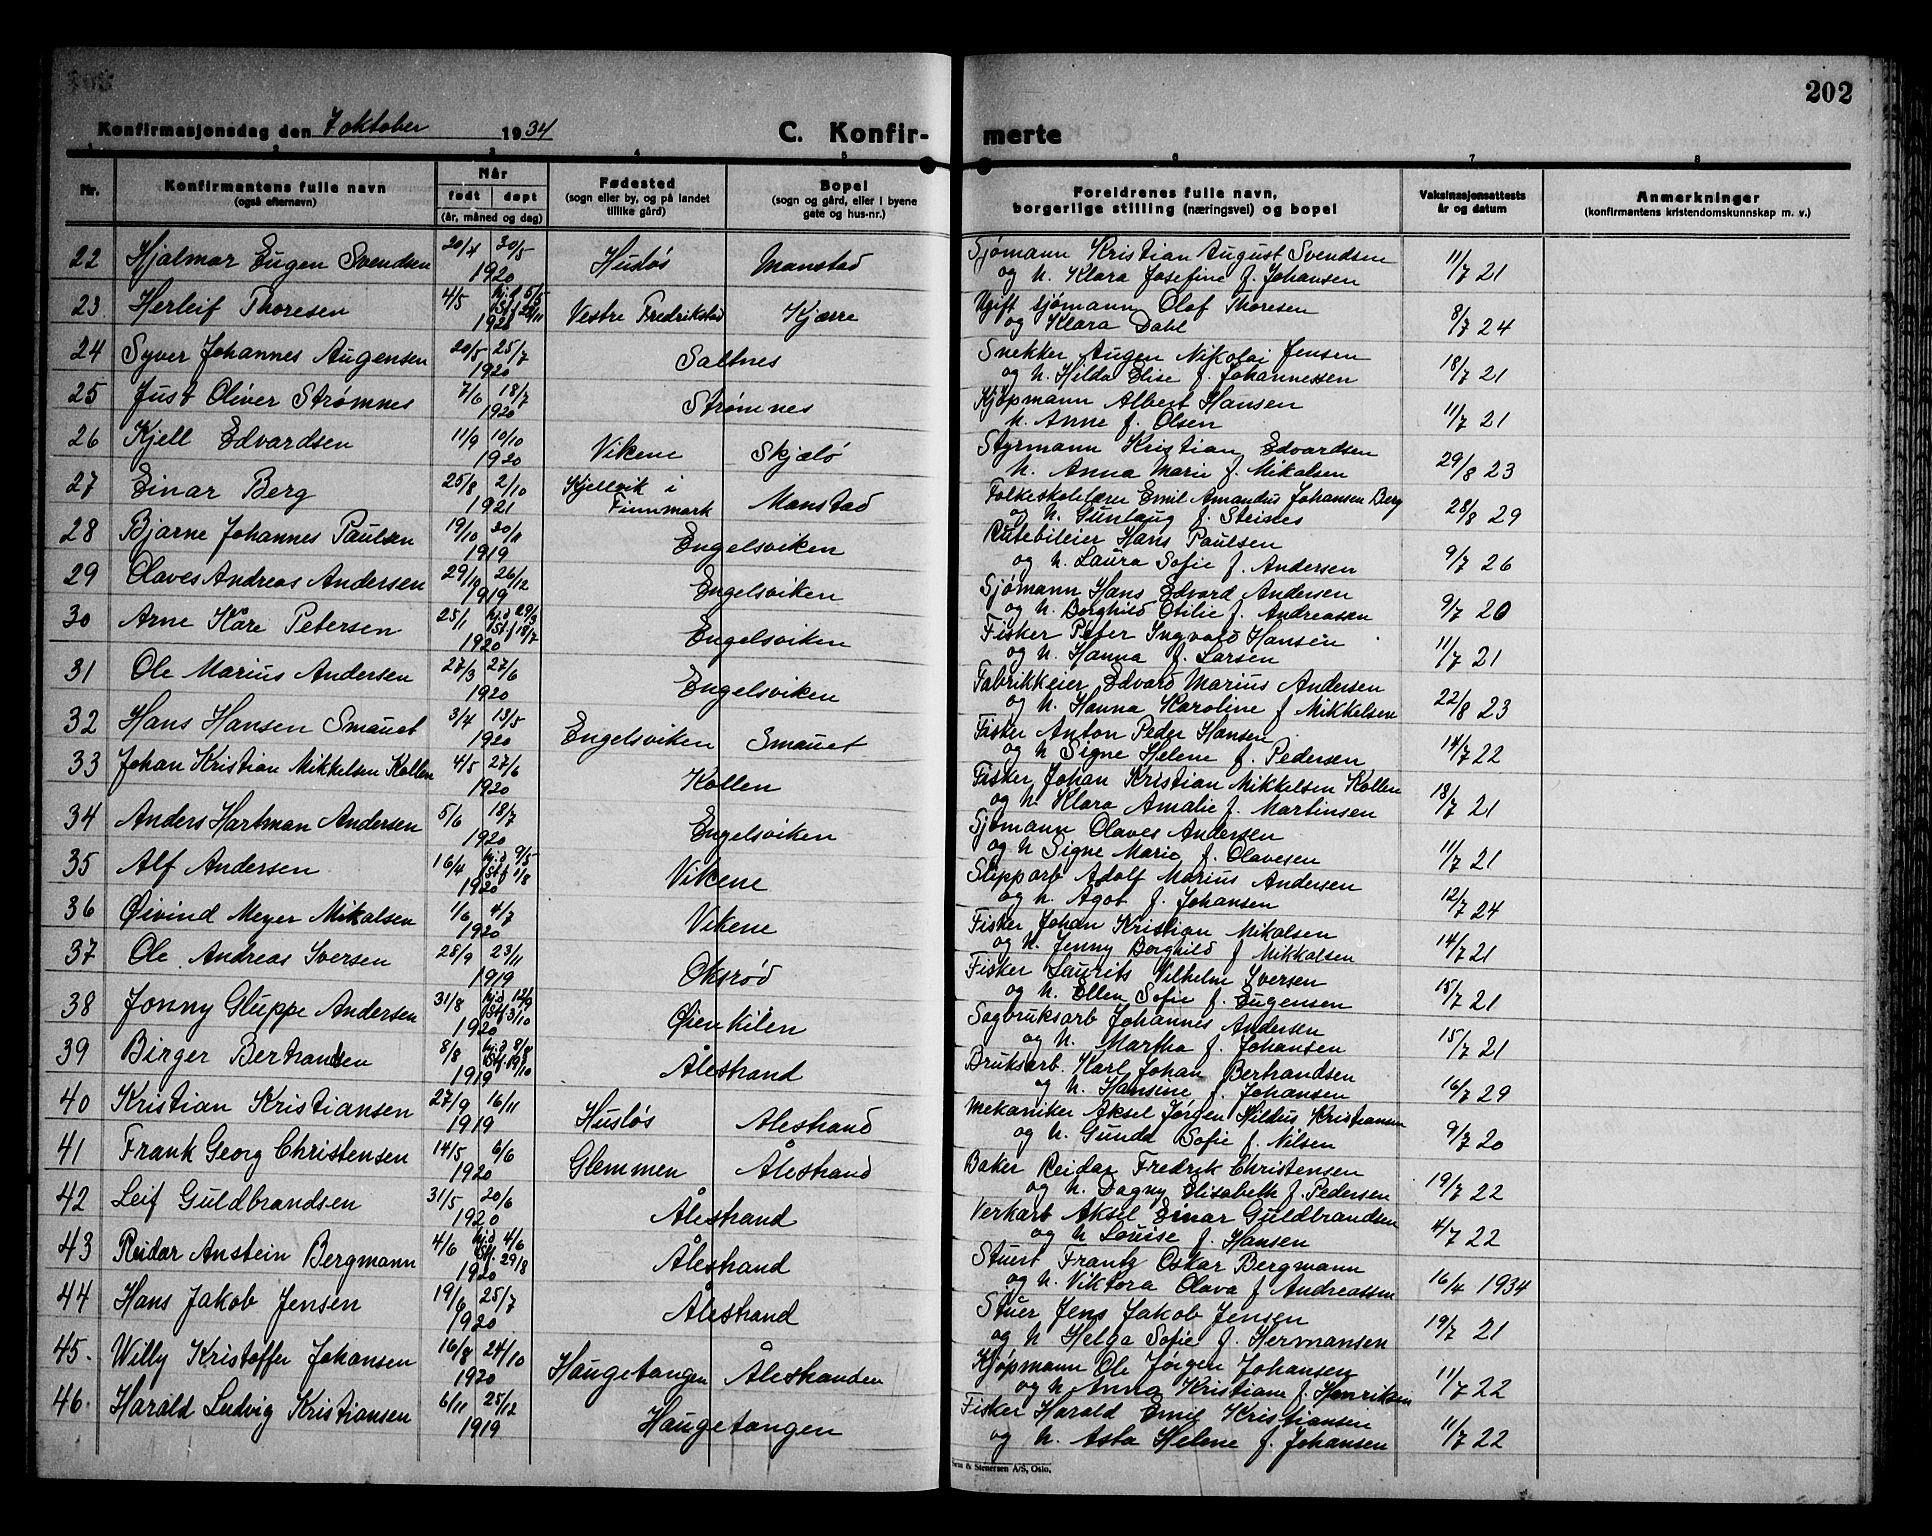 202
Konfirmasjonsdag den 7 oktober 1934 C. Konfir- merte
1 2 3 4 5 6 7 8
Nr. Konfirmantens fulle navn (også efternavn) Når født døpt (år, måned og dag) Fødested (sogn eller by, og på landet tillike gård) Bopel (sogn og gård, eller i byene gate og hus-nr.) Foreldrenes fulle navn, borgerlige stilling (næringsvei) og bopel Vaksinasjonsattests år og datum Anmerkninger (konfirmantens kristendomskunnskap m. v.)
22 Hjalmar Eugen Svendsen 20/4 30/5 1920 Husløs Manstad Sjømann Kristian August Svendsen og h. Klara Josefine f. Johansen 11/7 21
23 Herleif Thoresen 4/5 hj.d 5/5 1920 Vestre Fredrikstad Kjærre Ugift sjømann Olof Thoresen og Klara Dahl 8/7 24
24 Syver Johannes Augensen 20/5 25/7 1920 Saltnes Snekker Augen Nikolai Jensen og h. Hilda Elise f. Johannessen 18/7 21
25 Just Oliver Strømnes 7/6 18/7 1920 Strømnes Kjøpmann Albert Hansen h. Anne f. Olsen 11/7 21
26 Kjell Edvardsen 11/9 10/10 1920 Vikene Skjælø Styrmann Kristian Edvardsen h. Anna Marie f. Mikalsen 29/8 23
27 Einar Berg 25/8 2/10 1921 Kjellvik i Finnmark Manstad Folkeskolelærer Emil Amandus Johansen Berg og h. Gunlaug f. Steines 28/8 29
28 Bjarne Johannes Paulsen 19/10 1919 Engelsviken Rutebileier Hans Paulsen og h. Laura Sofie f. Andersen 9/7 26
29 Olaves Andreas Andersen 29/10 26/12 1919 Engelsviken Sjømann Hans Edvard Andersen og h. Borghild Otilie f. Andreasen 9/7 20
30 Arne Kåre Petersen 25/1 hj.d 29/3 Stf 18/7 1920 Engelsviken Fisker Peter Ingvald Hansen og h. Hanna f. Larsen 11/7 21
31 Ole Marius Andersen 27/3 27/6 1920 Engelsviken Fabrikkeier Edvard Marius Andersen og h. Hanna Karoline f Mikkelsen 22/8 23
32 Hans Hansen Smauet 3/4 13/5 1920 Engelsviken Smauet Fisker Anton Peder Hansen og h Signe Helene f. Pedersen 14/7 22
33 Johan Kristian Mikkelsen Kollen 4/5 27/6 1920 Kollen Fisker Johan Kristian Mikkelsen Kollen og h. Klara Amalie f. Martinsen 18/7 21
34 Anders Hartman Andersen 5/6 18/7 1920 Engelsviken Sjømann Olaves Andersen og h Signe Marie f. Olavesen 11/7 21
35 Alf Andersen 16/4 hj.d 9/5 Stf 1/8 1920 Vikene Slipparb Adolf Marius Andersen og h. Agot f. Johansen 12/7 24
36 Øivind Meyer Mikalsen 1/6 4/7 1920 Vikene Fisker Johan Kristian Mikalsen og h. Jenny Borghild f Mikkalsen 14/7 21
37 Ole Andreas Iversen 28/9 23/11 1919 Oksrød Fisker Laurits Vilhelm Iversen og h. Ellen Sofie f. Eugensen 15/7 21
38 Jonny Gluppe Andersen 31/8 hj.d 12/9 Stf 3/10 1920 Øienkilen Sagbruksarb Johannes Andersen og h. Martha f. Johansen 15/7 21
39 Birger Bertrandsen 8/8 hj.d 8/8 Stf 19/10 1919 Ålestrand Bruksarb. Karl Johan Bertrandsen og h. Hansine f. Johansen 16/7 29
40 Kristian Kristiansen 27/9 16/11 1919 Husløs Ålestrand Mekaniker Aksel Jørgen Hildus Kristiansen og h. Gunda Sofie f. Nilsen 9/7 20
41 Frank Georg Christensen 14/5 6/6 1920 Glemmen Ålestrand Baker Reidar Fredrik Christensen og h. Dagny Elisabeth f. Pedersen 19/7 22
42 Leif Guldbrandsen 31/5 20/6 1920 Ålestrand Verkarb Aksel Einar Guldbrandsen og h Louise f. Hansen 4/7 22
43 Reidar Anstein Bergmann 4/6 hj.d 4/6 Stf. 29/8 1920 Ålestrand Stuert Frantz Oskar Bergmann og h. Viktora Olava f Andreassen 16/4 1934
44 Hans Jakob Jensen 19/6 25/7 1920 Ålestrand Stuer Jens Jakob Jensen og h Helga Sofie f. Hermansen 19/7 21
45. Willy Kristoffer Johansen 16/8 24/10 1920 Haugetangen Ålestranden Kjøpmann Ole Jørgen Johansen og h Anna Kristiane f. Henriksen 11/7 22
46. Harald Ludvig Kristiansen 6/11 25/12 1919 Haugetangen Fisker Harald Emil Kristiansen og h. Asta Helene f. Johansen 11/7 22
& Stenersen A/S, Oslo.